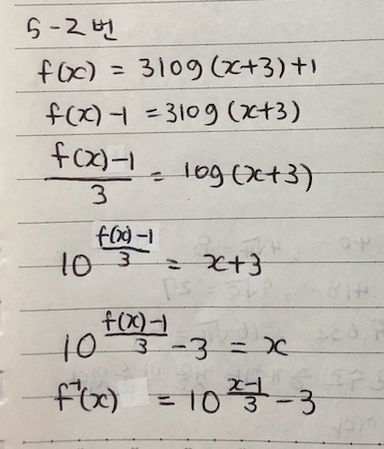 5-2번
f(x) = 3log(x+3)+1
f(x)-1 = 3log(x+3)
\frac{f(x)-1}{3} = log(x+3)
10^{\frac{f(x)-1}{3}} = x+3
10^{\frac{f(x)-1}{3}} -3 = x
f^{-1}(x) = 10^{\frac{x-1}{3}} -3